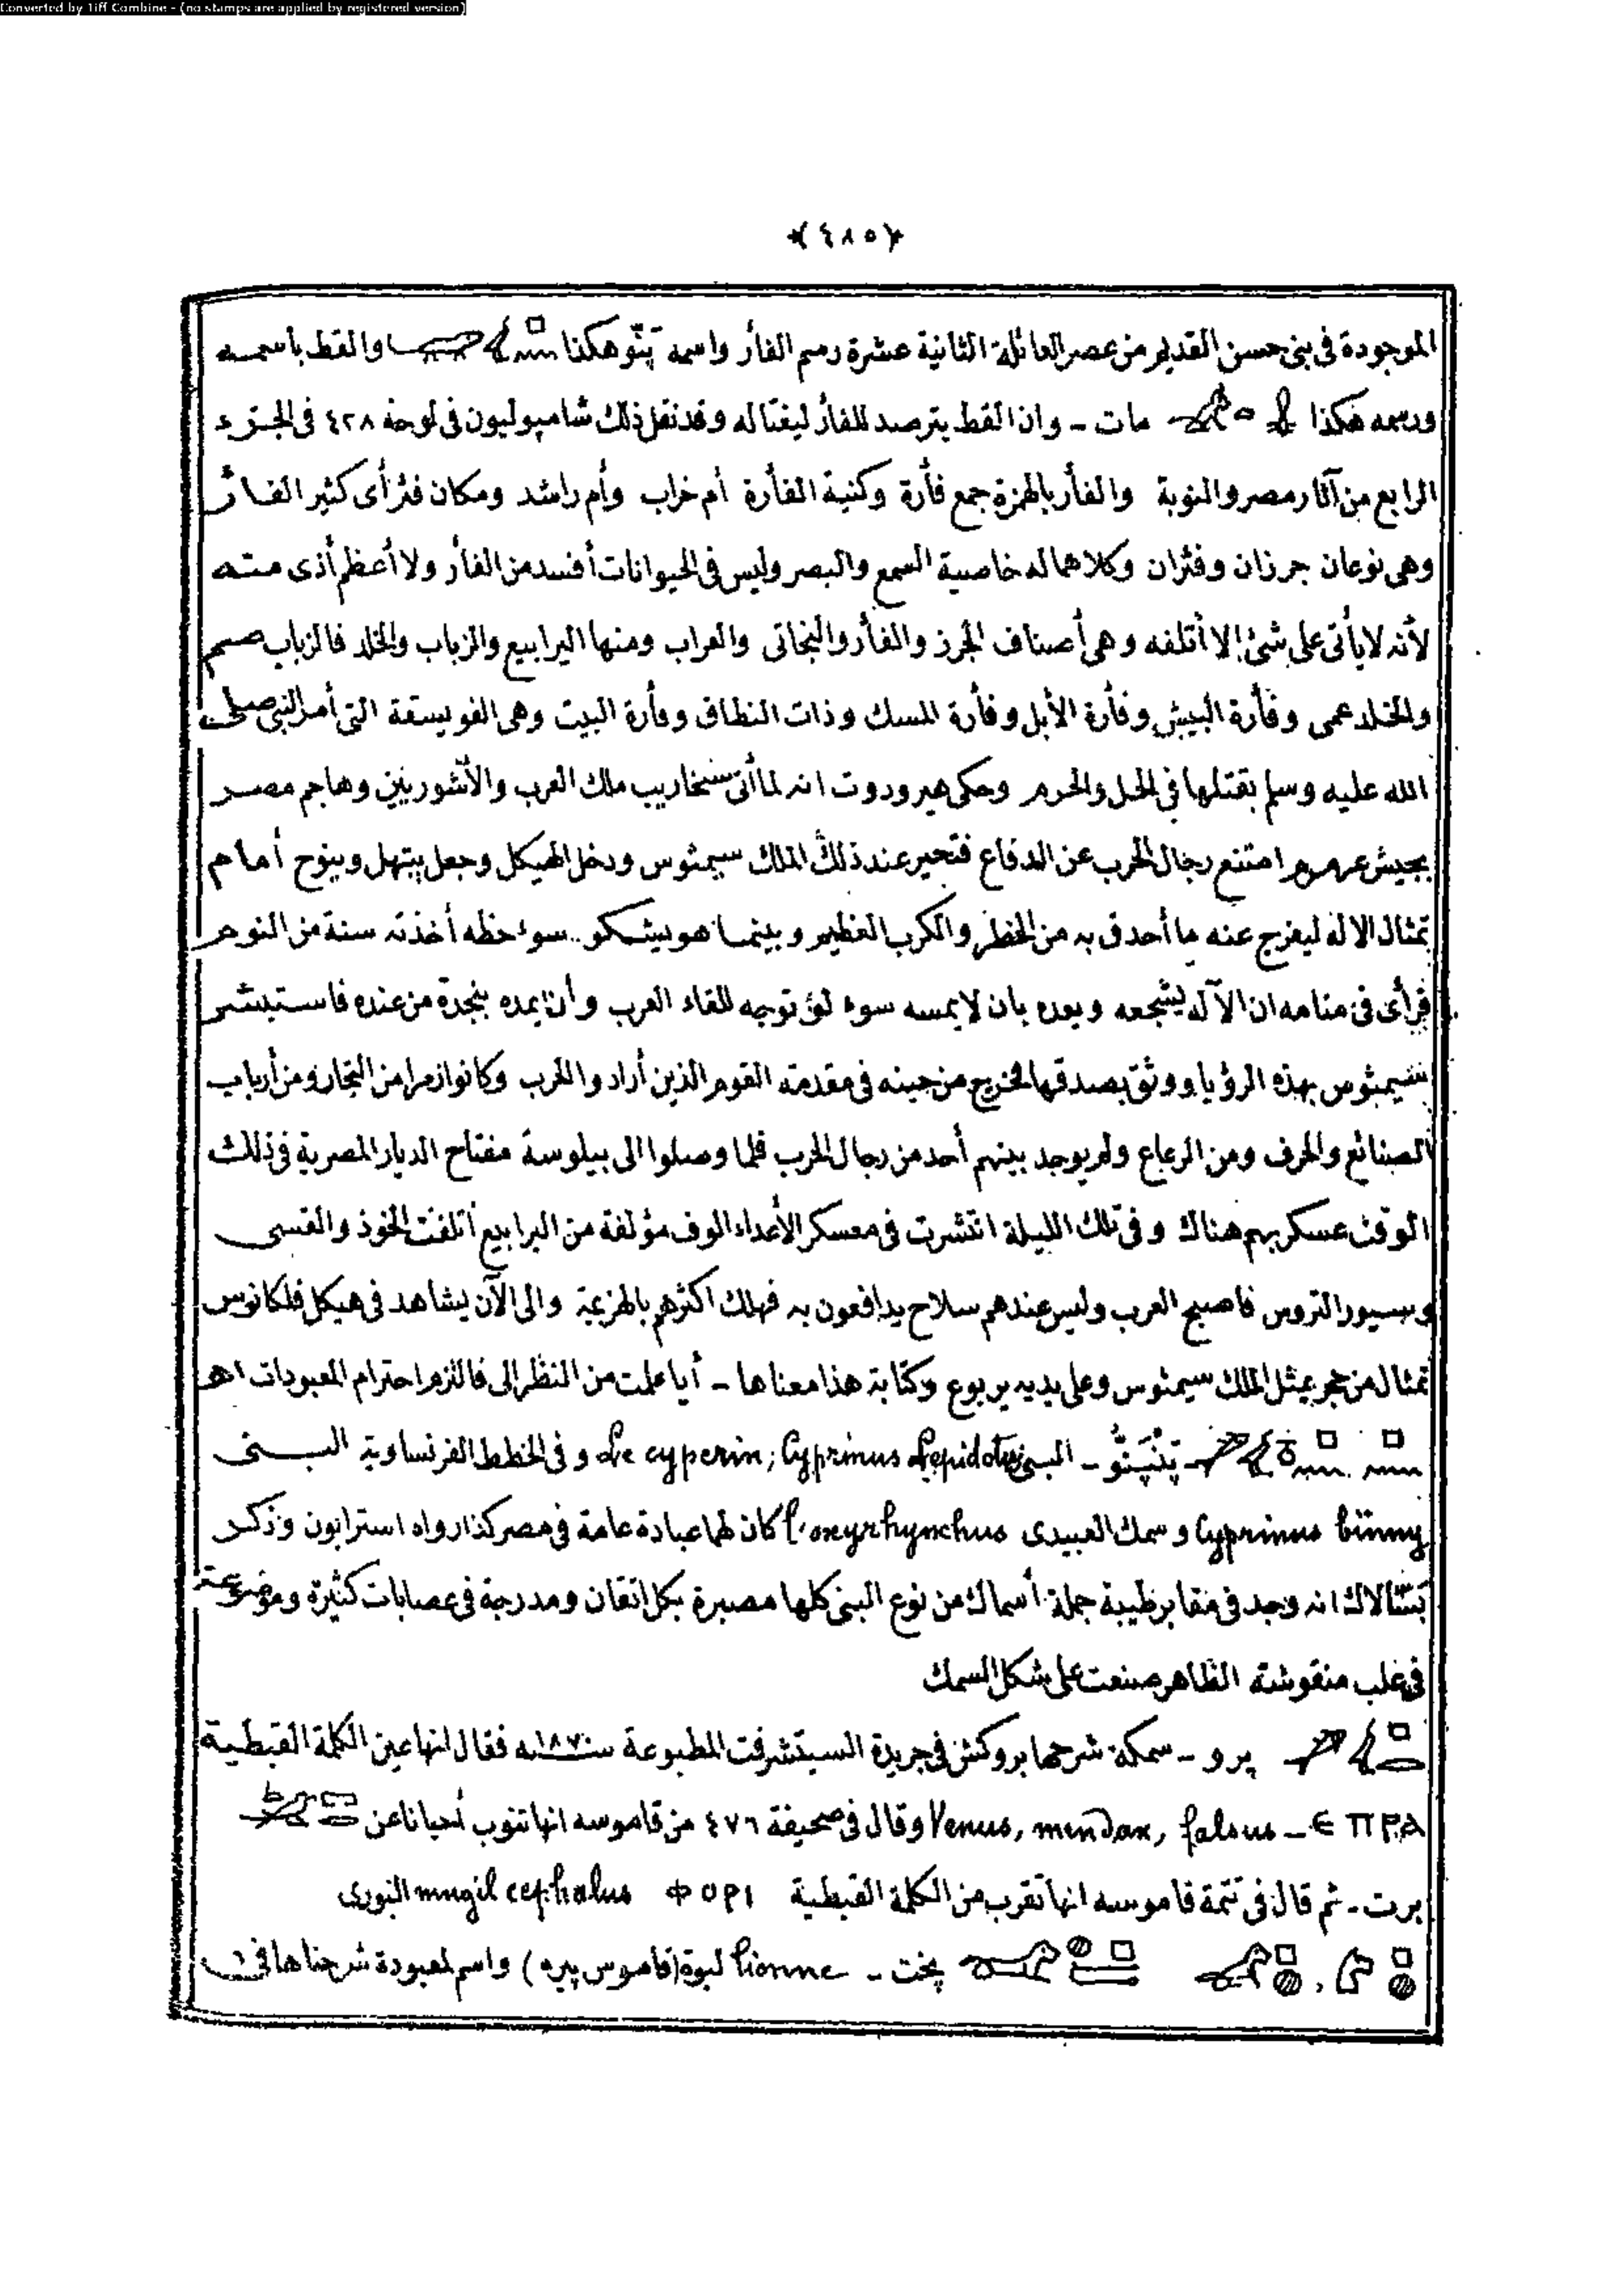 Converted by Tiff Combine - (no stamps are applied by registered version)
﴿٤٨٥﴾
الموجودة فى بنى حسن القديم من عصر العائلة الثانية عشرة رسم الفأر واسمه پَنّو هكذا والقط باسمه
ورسمه هكذا مات - وان القط يترصد للفأر ليغتاله وقد نقل ذلك شامپوليون فى لوحة ٤٢٨ فى الجزء
الرابع من آثار مصر والنوبة والفأر بالهمزة جمع فأرة وكنية الفأرة أم خراب وأم راشد ومكان فئر أى كثير الفأر
وهى نوعان جرزان وفئران وكلاهما له خاصية السمع والبصر وليس فى الحيوانات أفسد من الفأر ولا أعظم أذى منه
لأنه لا يأتى على شئ إلا أتلفه وهى أصناف الجرز والفأر والنجاتى والعراب ومنها اليرابيع والزباب والخلد فالزباب صم
والخلد عمى وفأرة البيش وفأرة الأبل وفأرة المسك وذات النطاق وفأرة البيت وهى الفويسقة التى أمر النبى صلى
الله عليه وسلم بقتلها فى الحل والحرم وحكى هيرودوت انه لما أتى سنخاريب ملك العرب والأشوريين وهاجم مصر
بجيش عرمرم امتنع رجال الحرب عن الدفاع فتحير عند ذلك الملك سيمثوس ودخل الهيكل وجعل يبتهل وينوح أمام
تمثال الاله ليفرج عنه ما أحدق به من الخطر والكرب العظيم وبينما هو يشكو سوء حظه أخذته سنة من النوم
فرأى فى منامه ان الآله يشجعه ويعده بان لا يمسه سوء لو توجه للقاء العرب وأن يمده بنجدة من عنده فاستبشر
سيمثوس بهذه الرؤيا ووثق بصدقها فخرج من حينه فى مقدمة القوم الذين أرادوا الحرب وكانوا زمرا من التجار ومن أرباب
الصنائع والحرف ومن الرعاع ولم يوجد بينهم أحد من رجال الحرب فلما وصلوا الى بيلوسة مفتاح الديار المصرية فى ذلك
الوقت عسكر بهم هناك وفى تلك الليلة انتشرت فى معسكر الأعداء الوف مؤلفة من اليرابيع أتلفت الخوذ والقسى
وسيور التروس فاصبح العرب وليس عندهم سلاح يدافعون به فهلك اكثرهم بالهزيمة والى الآن يشاهد فى هيكل فلكانوس
تمثال من حجر يمثل الملك سيمثوس وعلى يديه يربوع وكتابة هذا معناها - أيا علمت من النظر الى فالتزم احترام المعبودات اه
پَنْپَنّو - البنى Le cyperin; Cyprinus Lepidotus وفى الخطط الفرنساوية البنى
Cyprinus binny وسمك العبيدى l'oxyrhynchus كان لهما عبادة عامة فى مصر كذا رواه استرابون وذكر
بتتالاك انه وجد فى مقابر طيبة جملة أسماك من نوع البنى كلها مصبرة بكل اتقان ومدرجة فى عصابات كثيرة وموضوعة
فى علب منقوشة الظاهر صنعت على شكل السمك
پرو - سمكة شرحها بروكش فى جريدة السيتشرفت المطبوعة سنة ١٨٧ فقال انها عين الكلمة القبطية
ⲉⲡⲣⲁ - Venus, mendax, falsus وقال فى صحيفة ٤٧٦ من قاموسه انها تنوب أحيانا عن
برت - ثم قال فى تتمة قاموسه انها تقرب من الكلمة القبطية ⲫⲟⲣⲓ mugil cephalus النورى
پخت - lionne لبوة (قاموس پيره) واسم لمعبودة شرحناها فى